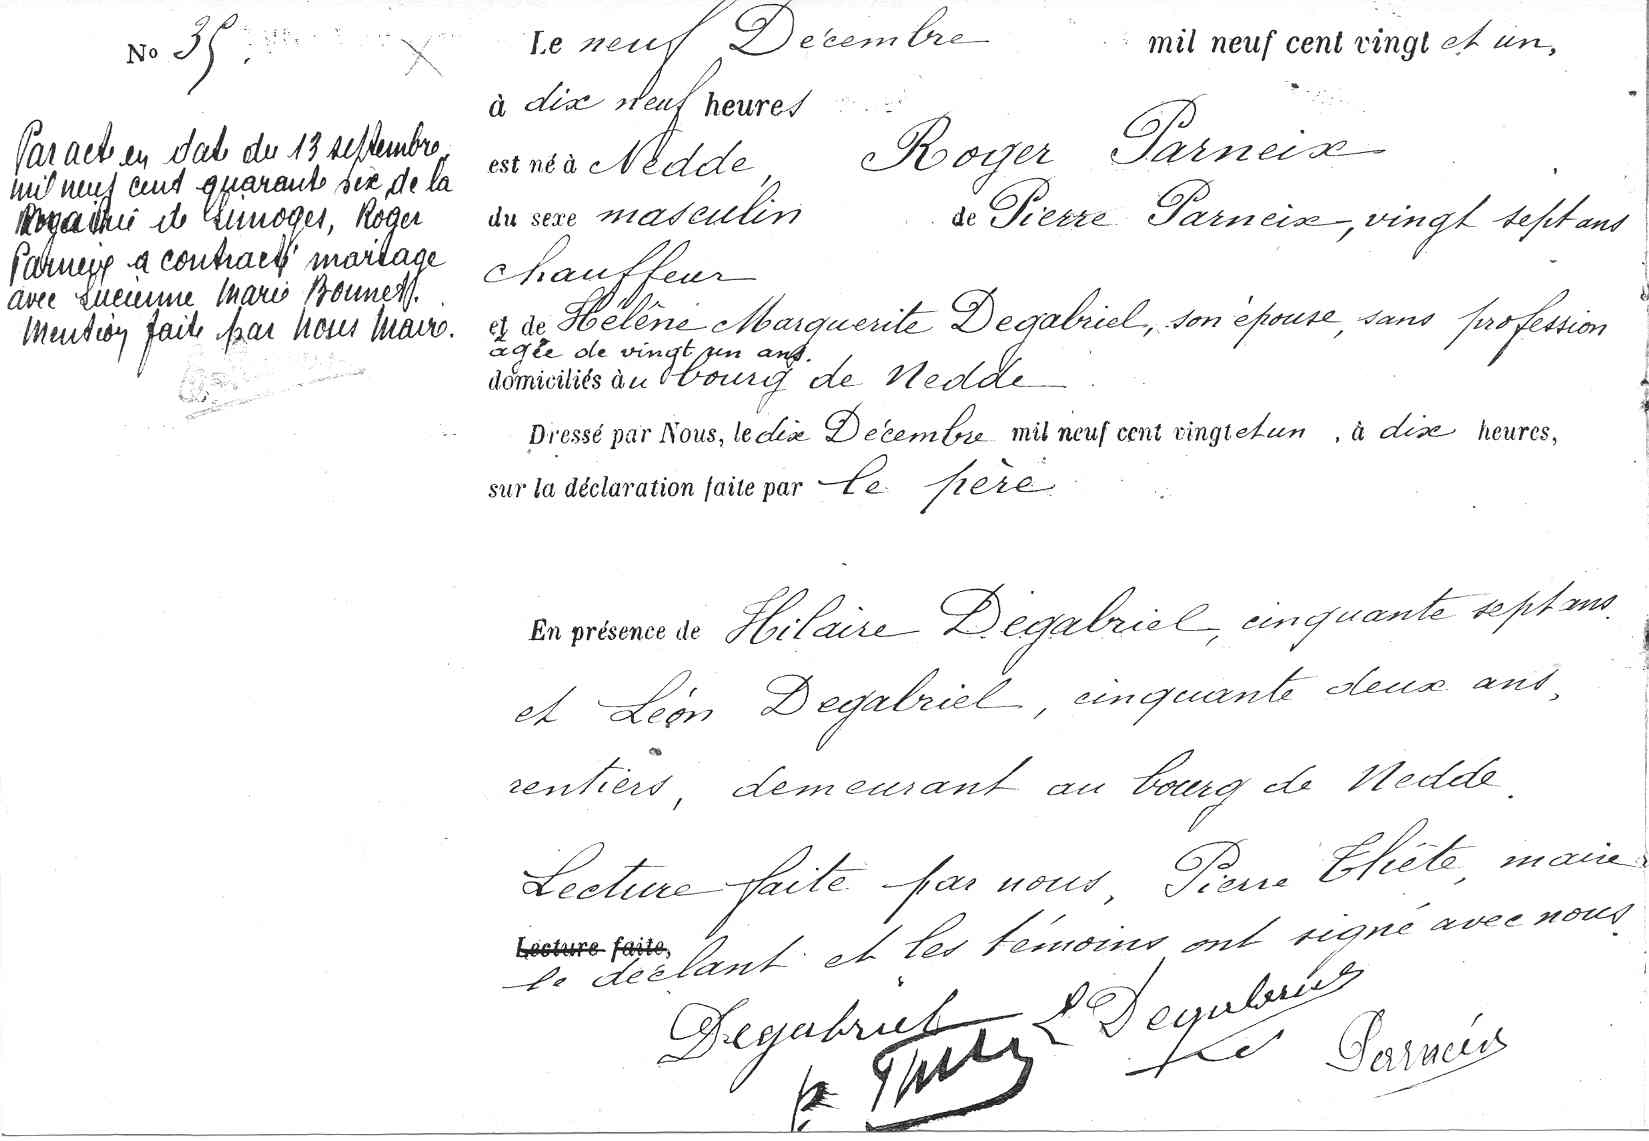 No 35.
Par acte en date du 13 septembre
mil neuf cent quarante six de la
Mairie de Limoges, Roger
Parneix a contracté mariage
avec Lucienne Marie Bonnet.
Mention faite par nous Maire.
Le neuf Décembre mil neuf cent vingt et un,
à dix neuf heures
est né à Nedde, Roger Parneix
du sexe masculin de Pierre Parneix, vingt sept ans
chauffeur
et de Hélène Marguerite Degabriel, son épouse, sans profession
agée de vingt un ans.
domiciliés au bourg de Nedde
Dressé par Nous, le dix Décembre mil neuf cent vingt et un, à dix heures,
sur la déclaration faite par le père
En présence de Hilaire Degabriel, cinquante sept ans
et Léon Degabriel, cinquante deux ans,
rentiers, demeurant au bourg de Nedde.
Lecture faite par nous, Pierre Thête, maire
Lecture faite,
le déclant et les témoins ont signé avec nous.
Degabriel L Degabriel
Parneix